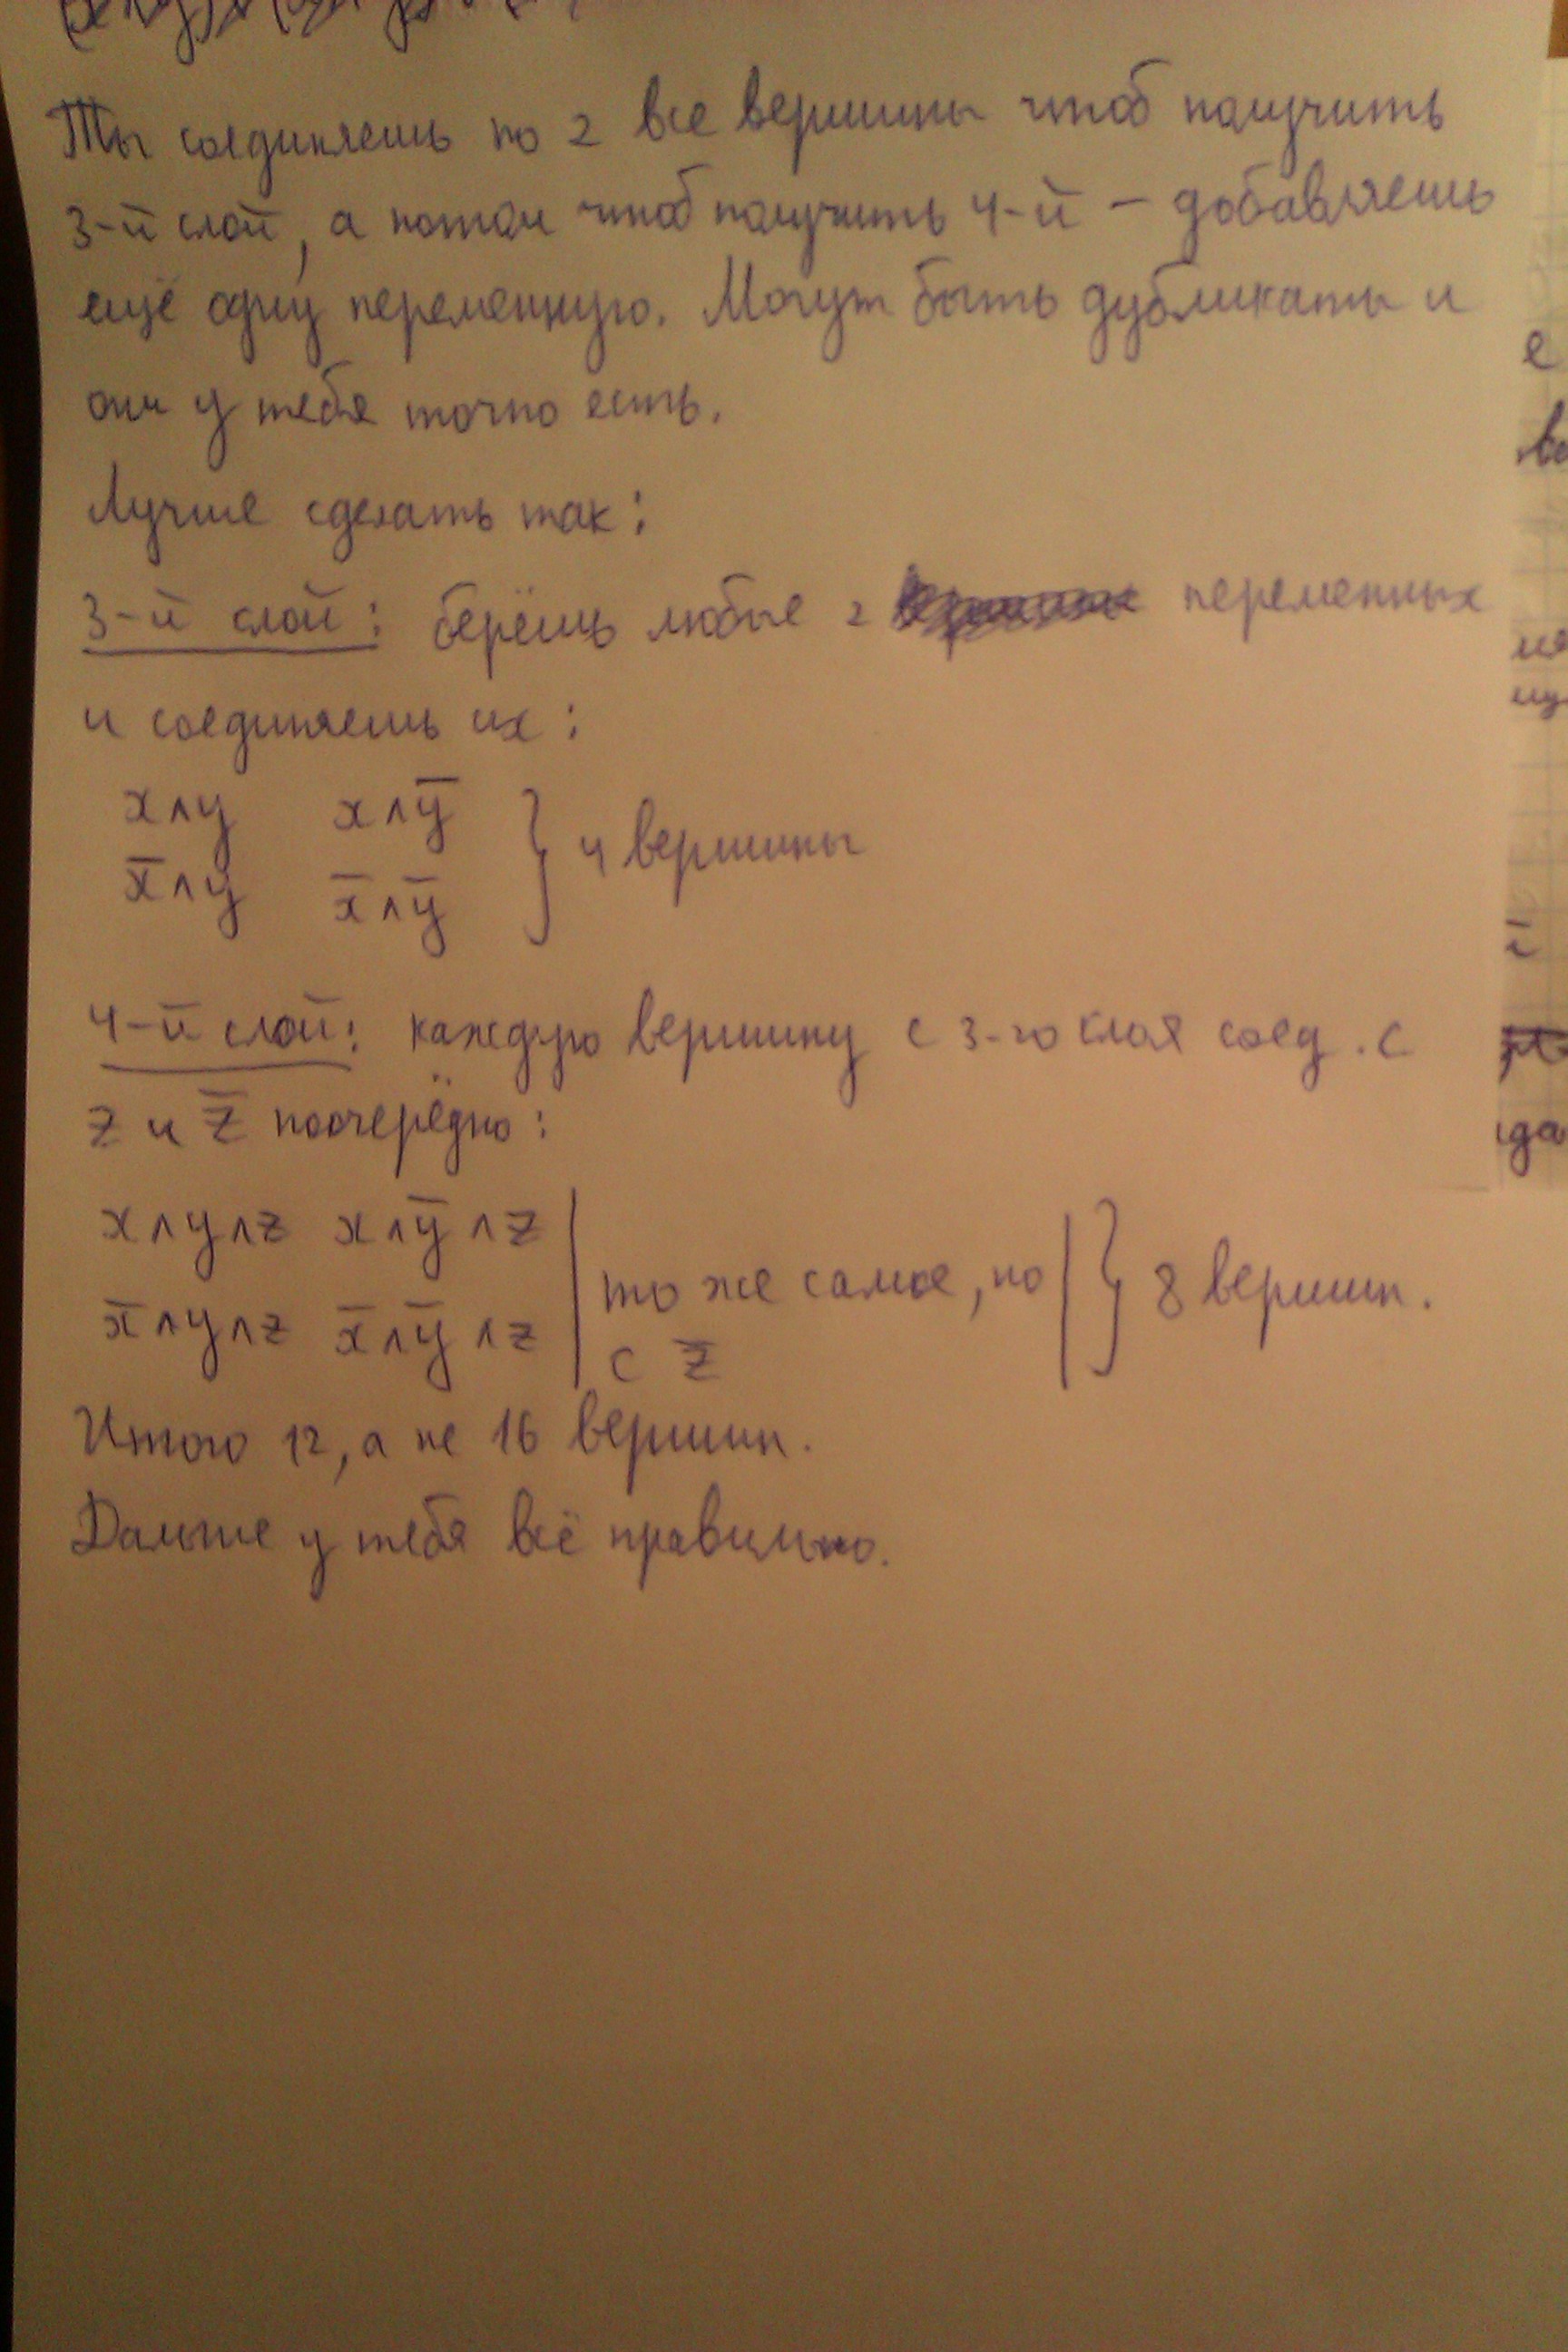 Ты соединяешь по 2 все вершины чтоб получить
3-й слой, а потом чтоб получить 4-й – добавляешь
ещё одну переменную. Могут быть дубликаты и
они у тебя точно есть.
Лучше сделать так:
3-й слой: берёшь любые 2 переменных
и соединяешь их:
x∧y x∧ȳ } 4 вершины
x̄∧y x̄∧ȳ
4-й слой: каждую вершину с 3-го слоя соед. с
z и z̄ поочерёдно:
x∧y∧z x∧ȳ∧z | то же самое, но | } 8 вершин.
x̄∧y∧z x̄∧ȳ∧z | с z̄
Итого 12, а не 16 вершин.
Дальше у тебя всё правильно.